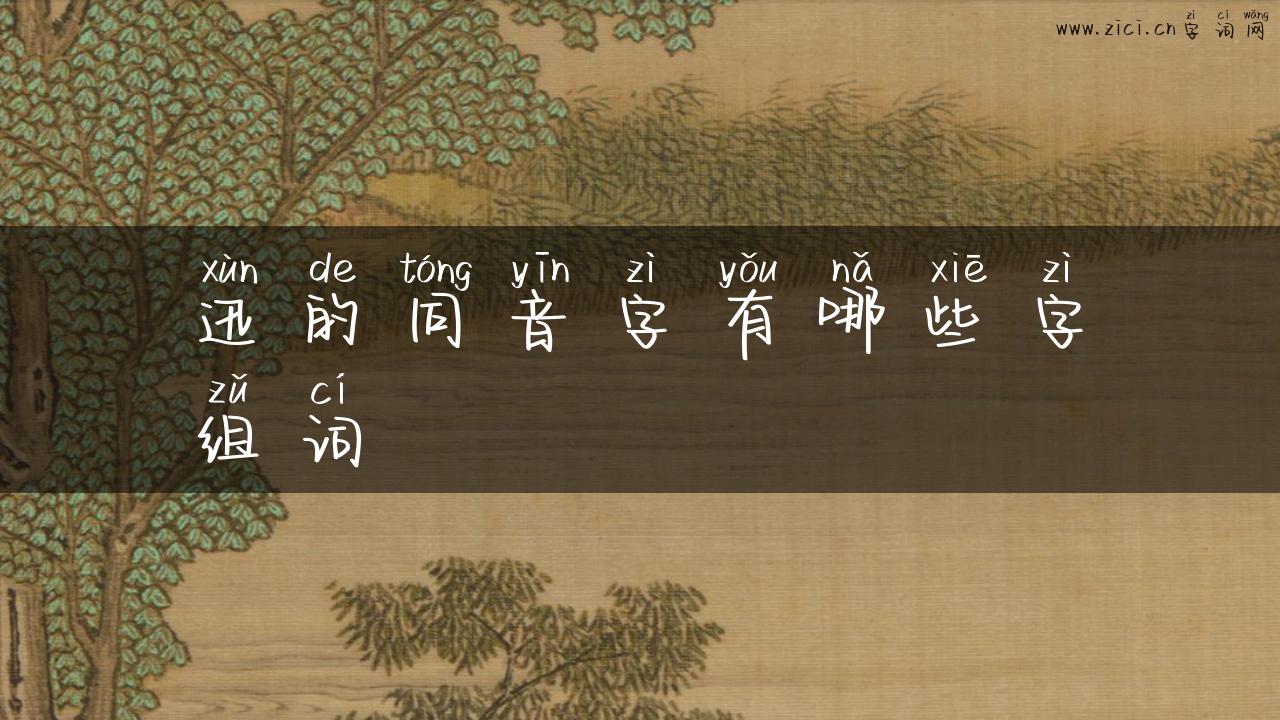 zì cí wǎng
www.zici.cn 字词网
xùn de tóng yīn zì yǒu nǎ xiē zì
迅的同音字有哪些字
zǔ cí
组词